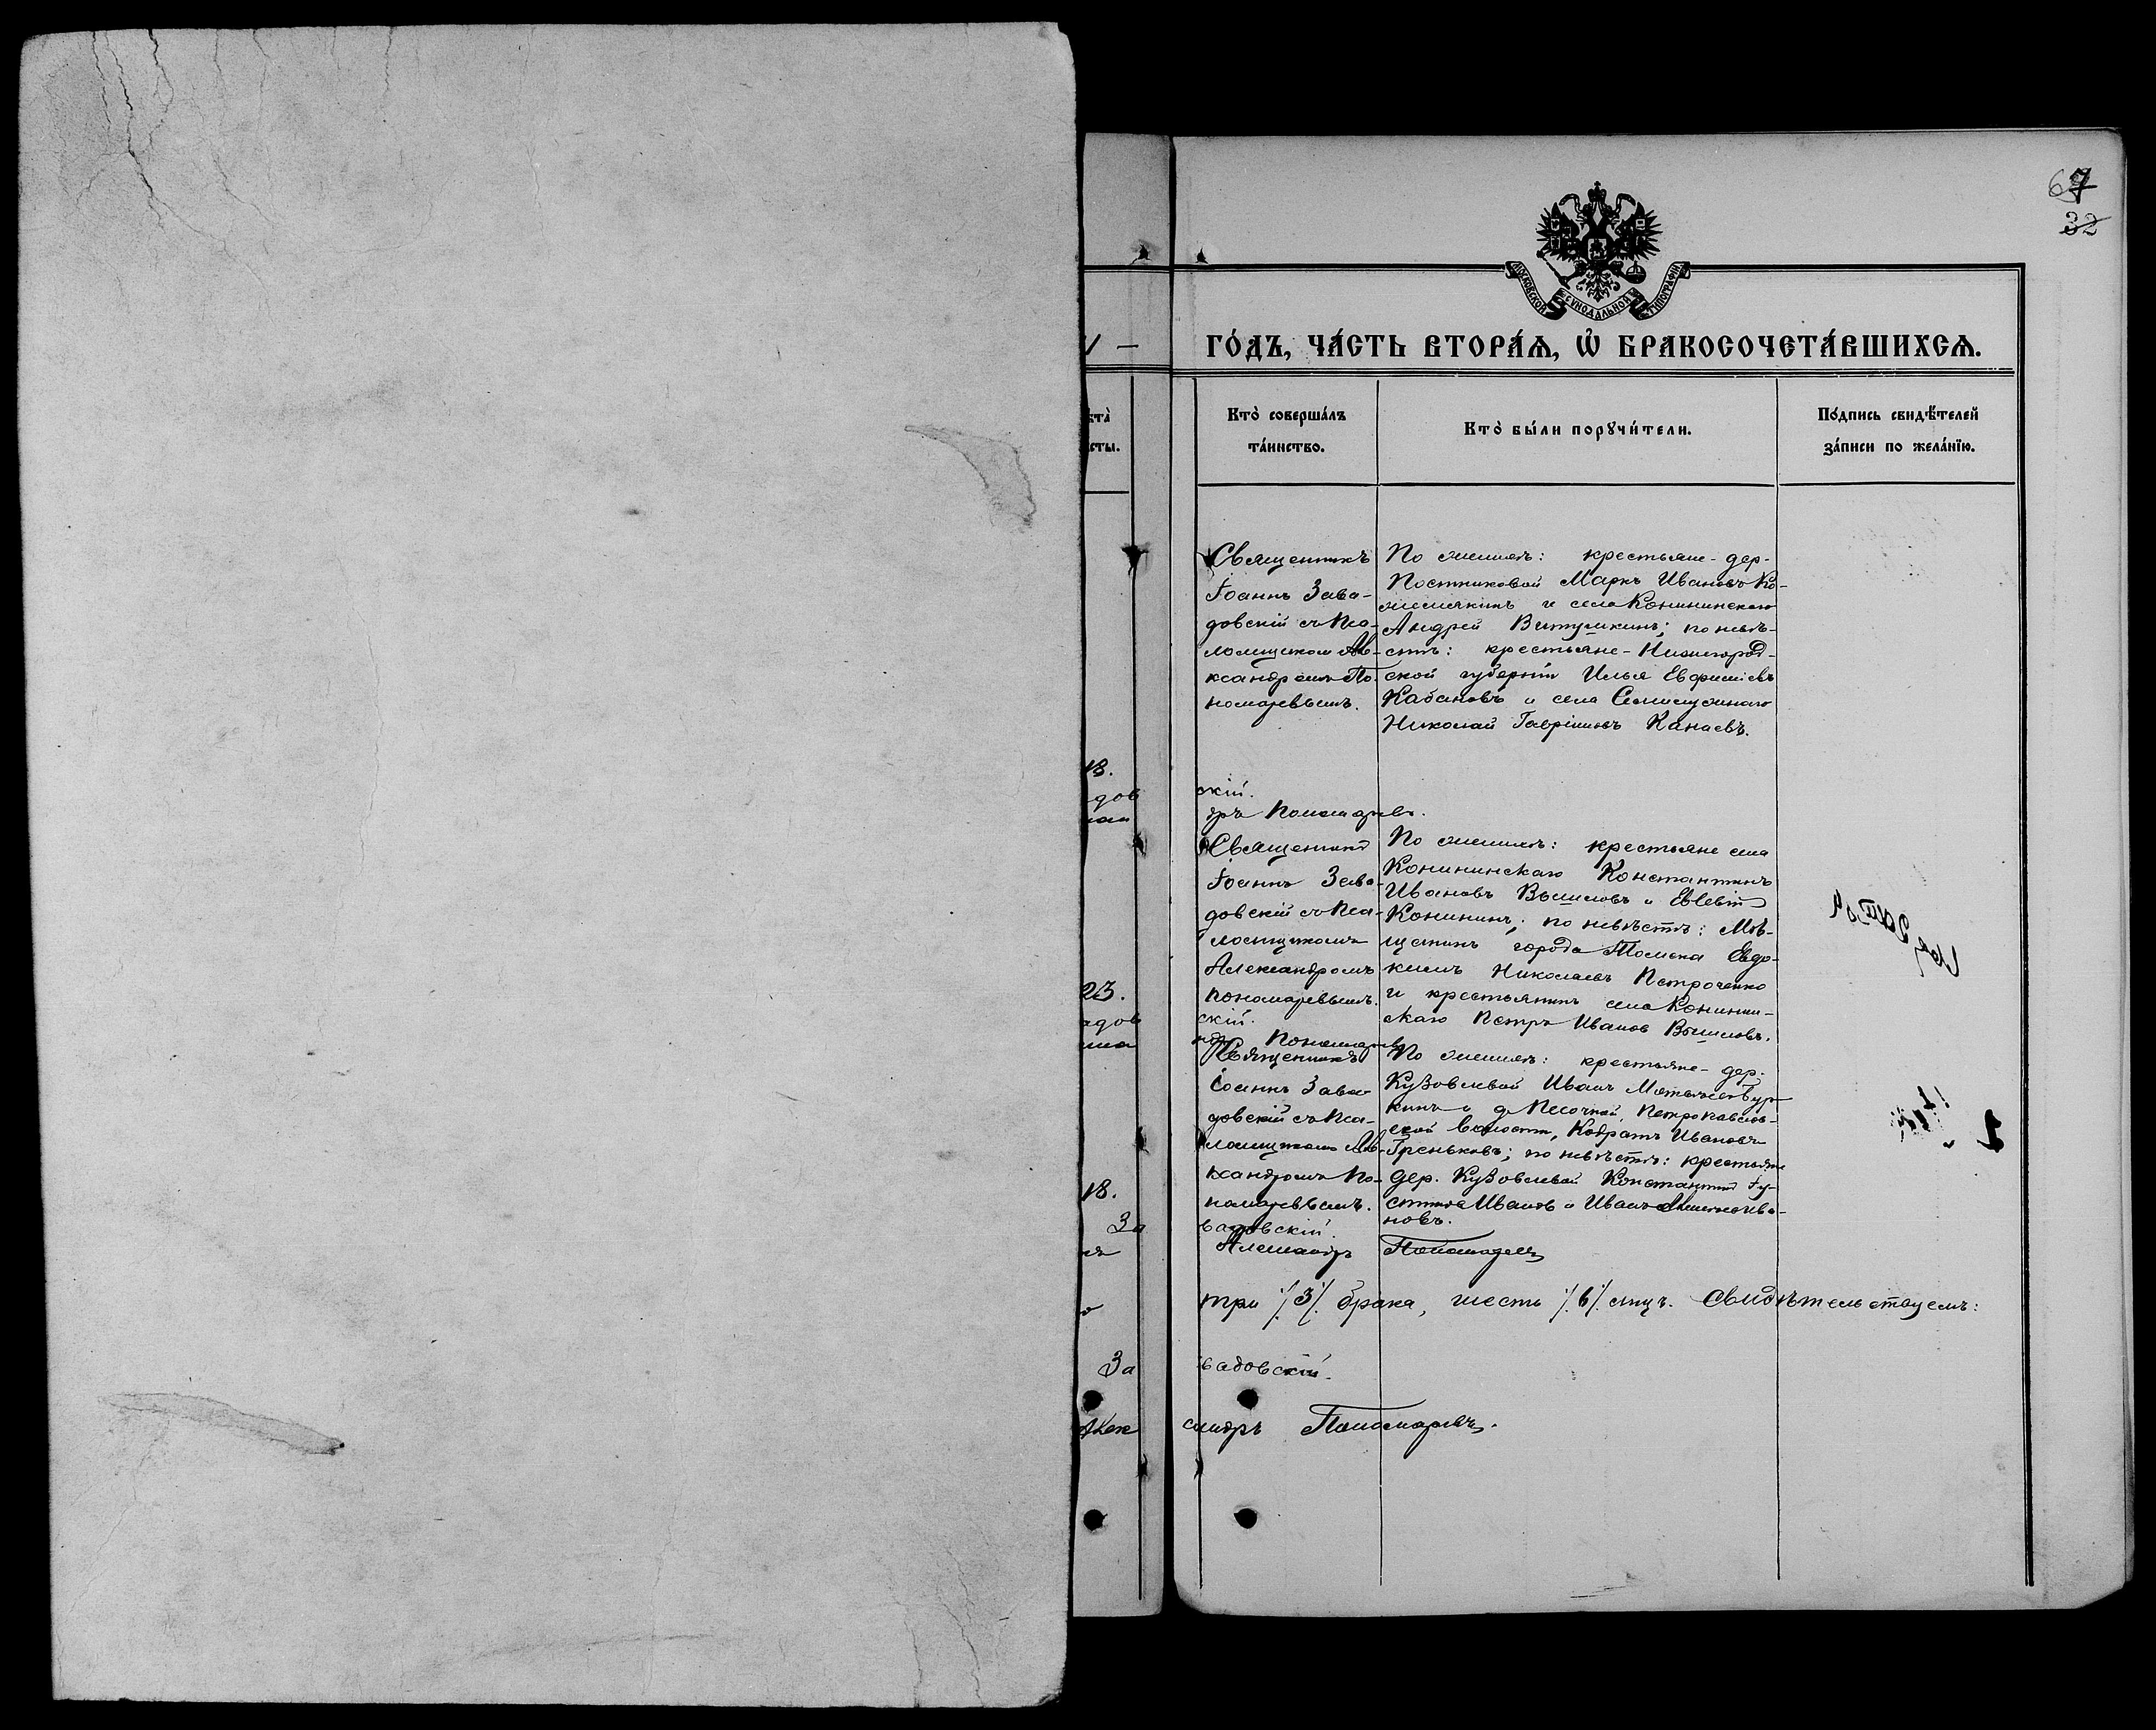 67
32
МОСКОВСКОЙ СѴНОДАЛЬНОЙ ТИПОГРАФІИ
ГО́ДЪ, ЧА́СТЬ ВТОРА́Ѧ, Ѽ БРАКОСОЧЕТА́ВШИХСѦ.
Кто̀ соверша́лъ
та́инство.
Кто̀ бы́ли порꙋчи́тели.
По́дпись свидѣ́телей
за́писи по жела́нїю.
Священникъ
Іоаннъ Зава-
довскій съ Пса-
ломщикомъ Але-
ксандромъ По-
номаревымъ.
По женихѣ: крестьяне - дер.
Постниковой Маркъ Ивановъ Ко-
жемякинъ и села Конининскаго
Андрей Витушкинъ; по невѣ-
стѣ: крестьяне - Нижегород-
ской губерніи Илья Евфиміевъ
Кабановъ и села Семилужнаго
Николай Гавріиловъ Канаевъ.
18.
скій.
дръ Пономаревъ.
Священникъ
Іоаннъ Зава-
довскій съ Пса-
ломщикомъ
Александромъ
Пономаревымъ.
По женихѣ: крестьяне села
Конининскаго Константинъ
Ивановъ Вышловъ и Евсевій
Конининъ; по невѣстѣ: Мѣ-
щанинъ города Томска Евдо-
кимъ Николаевъ Петроченко
и крестьянинъ села Конинин-
скаго Петръ Ивановъ Вышловъ.
23.
скій.
Пономаревъ
Священникъ
Іоаннъ Зава-
довскій съ Пса-
ломщикомъ Але-
ксандромъ По-
номаревымъ.
По женихѣ: крестьяне - дер.
Кузовлевой Иванъ
и д. Песочной Петропавлов-
ской волости, Кодратъ Ивановъ
Греньковъ; по невѣстѣ: крестьяне
дер. Кузовлевой Константинъ
Ивановъ и Иванъ
новъ.
18.
За вадовскій.
Александръ Пономаревъ
три /3/ брака, шесть /6/ лицъ. Свидѣтельствуемъ:
За вадовскій.
Алек сандръ Пономаревъ.